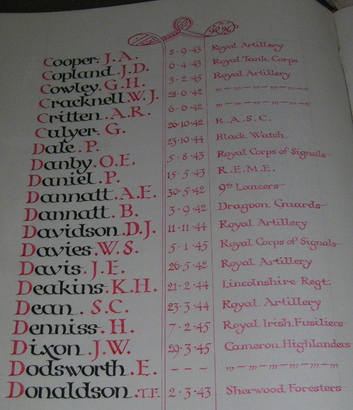 Cooper. J.A. 8-9-43 Royal Artillery
Copland. J.D. 0-4-43 Royal Tank Corps
Cowley. G.H. 3-2-45 Royal Artillery
Cracknell. W.J. 28-0-42 — " — " — " — " —
Critten. A.R. 6-0-42 — " — " — " — " —
Culyer. G. 26-10-42 R.A.S.C.
Dale. P. 23-10-44 Black Watch
Danby. O.E. 5-8-43 Royal Corps of Signals
Daniel. P. 15-5-43 R.E.M.E.
Dannatt. A.E. 30-5-42 9th Lancers
Dannatt. B. 3-9-42 Dragoon Guards
Davidson. D.J. 11-11-44 Royal Artillery
Davies. W.S. 5-1-45 Royal Corps of Signals
Davis. J.E. 26-5-42 Royal Artillery
Deakins. K.H. 21-2-44 Lincolnshire Regt.
Dean. S.C. 23-3-44 Royal Artillery
Denniss. H. 7-2-45 Royal Irish Fusiliers
Dixon. J.W. 29-3-45 Cameron Highlanders
Dodsworth. E. - - - — " — " — " — " —
Donaldson. T.F. 2-3-43 Sherwood Foresters